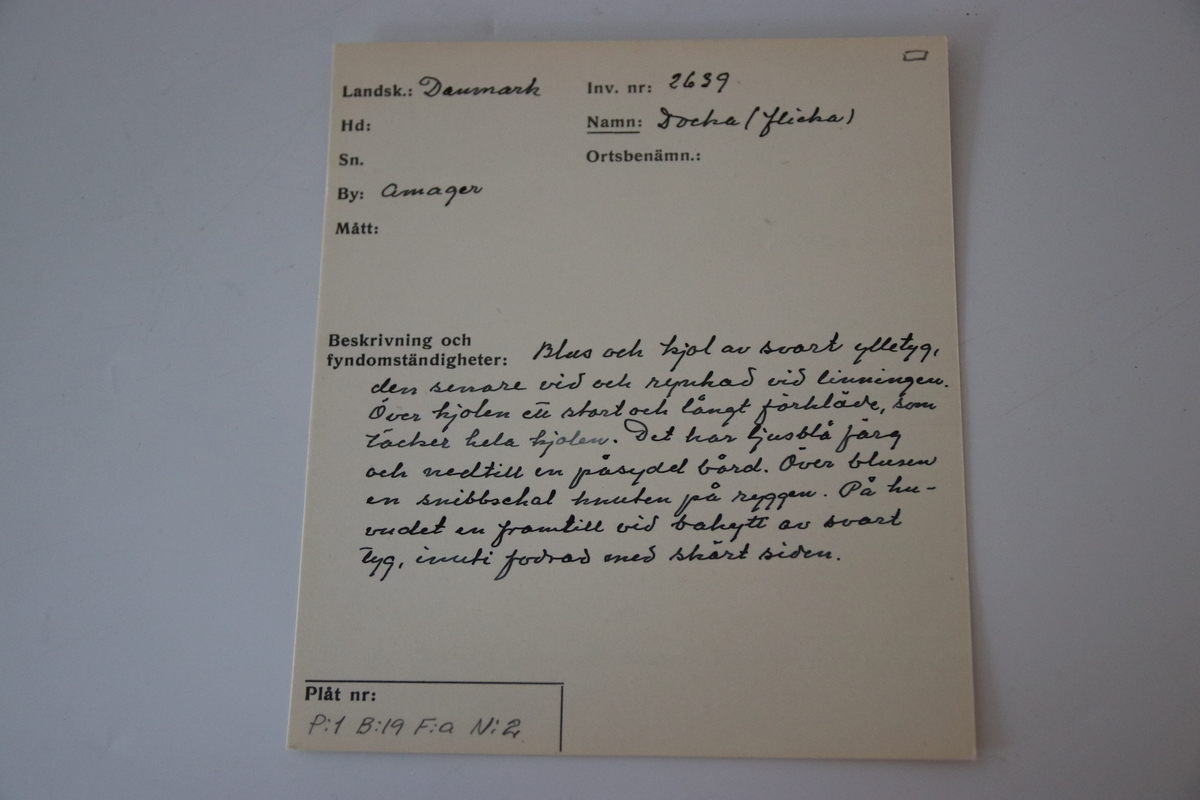 Landsk.: Danmark
Inv. nr: 2639
Hd:
Namn: Docka (flicka)
Sn.
Ortsbenämn.:
By: Amager
Mått:
Beskrivning och
fyndomständigheter: Blus och kjol av svart ylletyg,
den senare vid och rynkad vid linningen.
Över kjolen ett stort och långt förkläde, som
täcker hela kjolen. Det har ljusblå färg
och nedtill en påsydd bård. Över blusen
en snibbschal knuten på ryggen. På hu-
vudet en framtill vid bahytt av svart
tyg, inuti fodrad med skärt siden.
Plåt nr:
P:1 B:19 F:a N:2